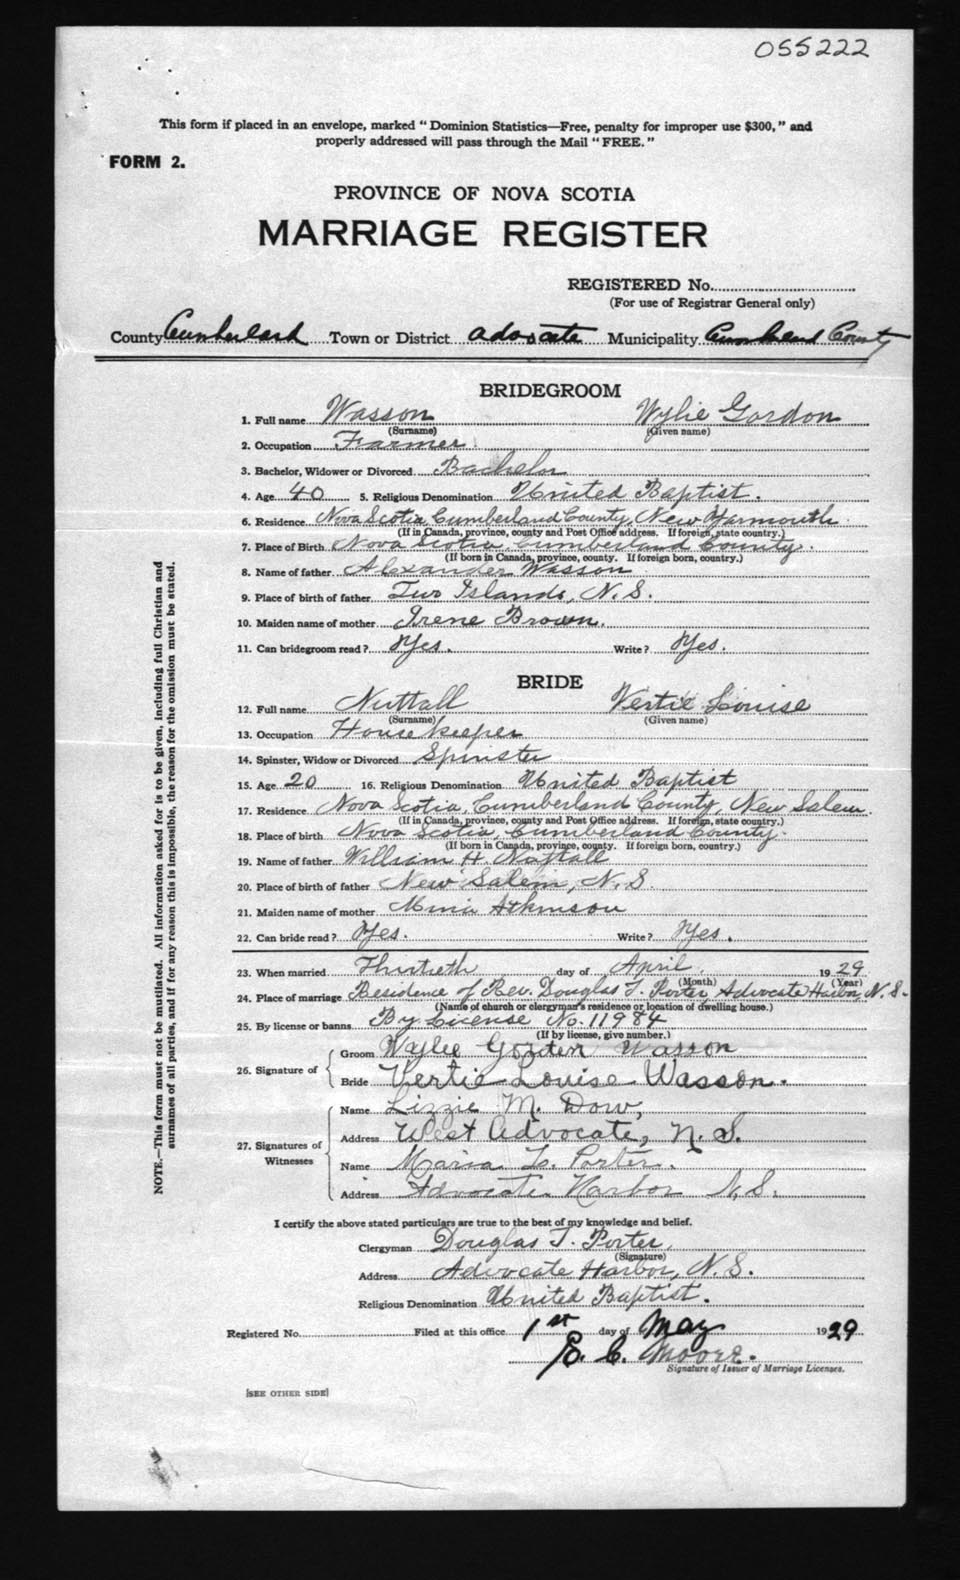 055222
This form if placed in an envelope, marked "Dominion Statistics—Free, penalty for improper use $300," and
properly addressed will pass through the Mail "FREE."
FORM 2.
PROVINCE OF NOVA SCOTIA
MARRIAGE REGISTER
REGISTERED No.
(For use of Registrar General only)
County Cumberland Town or District Advocate Municipality Cumberland County
BRIDEGROOM
1. Full name Wasson Wylie Gordon
(Surname) (Given name)
2. Occupation Farmer
3. Bachelor, Widower or Divorced Bachelor
4. Age 40 5. Religious Denomination United Baptist.
6. Residence Nova Scotia, Cumberland County, New Yarmouth.
(If in Canada, province, county and Post Office address. If foreign, state country.)
7. Place of Birth Nova Scotia, Cumberland County.
(If born in Canada, province, county. If foreign born, country.)
8. Name of father Alexander Wasson
9. Place of birth of father Two Islands, N.S.
10. Maiden name of mother Irene Brown.
11. Can bridegroom read? Yes. Write? Yes.
BRIDE
12. Full name Nuttall Vertie Louise
(Surname) (Given name)
13. Occupation Housekeeper
14. Spinster, Widow or Divorced Spinster
15. Age 20 16. Religious Denomination United Baptist
17. Residence Nova Scotia, Cumberland County, New Salem.
(If in Canada, province, county and Post Office address. If foreign, state country.)
18. Place of birth Nova Scotia, Cumberland County.
(If born in Canada, province, county. If foreign born, country.)
19. Name of father William H. Nuttall
20. Place of birth of father New Salem, N.S.
21. Maiden name of mother Mina Atkinson
22. Can bride read? Yes. Write? Yes.
23. When married Thirtieth day of April. 1929
(Month) (Year)
24. Place of marriage Residence of Rev. Douglas T. Porter, Advocate Harbor, N.S.
(Name of church or clergyman's residence or location of dwelling house.)
25. By license or banns By License No. 11984
(If by license, give number.)
26. Signature of
Groom Wylie Gorden Wasson
Bride Vertie Louise Wasson.
27. Signatures of Witnesses
Name Lizzie M. Dow,
Address West Advocate, N.S.
Name Maria L. Porter.
Address Advocate Harbor N.S.
I certify the above stated particulars are true to the best of my knowledge and belief.
Clergyman Douglas T. Porter,
(Signature)
Address Advocate Harbor, N.S.
Religious Denomination United Baptist.
Registered No. Filed at this office 1st day of May 1929
E. C. Moore.
Signature of Issuer of Marriage Licenses.
[SEE OTHER SIDE]
NOTE.—This form must not be mutilated. All information asked for is to be given, including full Christian and
surnames of all parties, and if for any reason this is impossible, the reason for the omission must be stated.